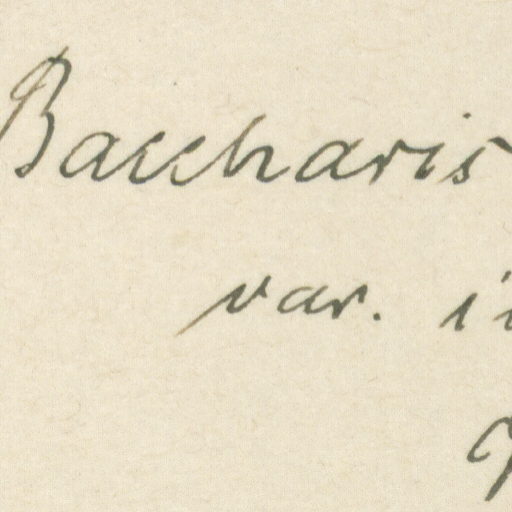 Baccharis
var.